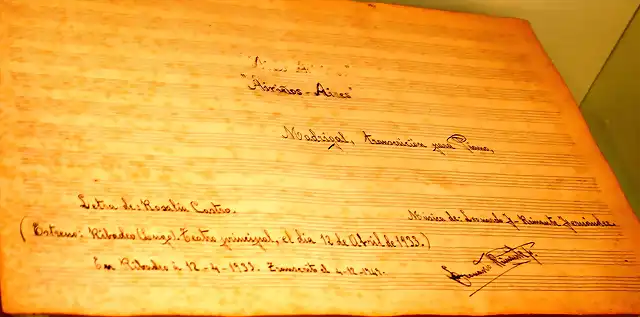 "Airiños - Aires"
Madrigal, transcrición para Piano,
Letra de: Rosalía Castro.
Música de: Leonardo J. Rimante Fernández.
(Estreno: Ribadeo (Lugo). Teatro principal, el dia 12 de Abril de 1933.)
En Ribadeo á 12-4-1933. Transcrito el 4-12-1941.